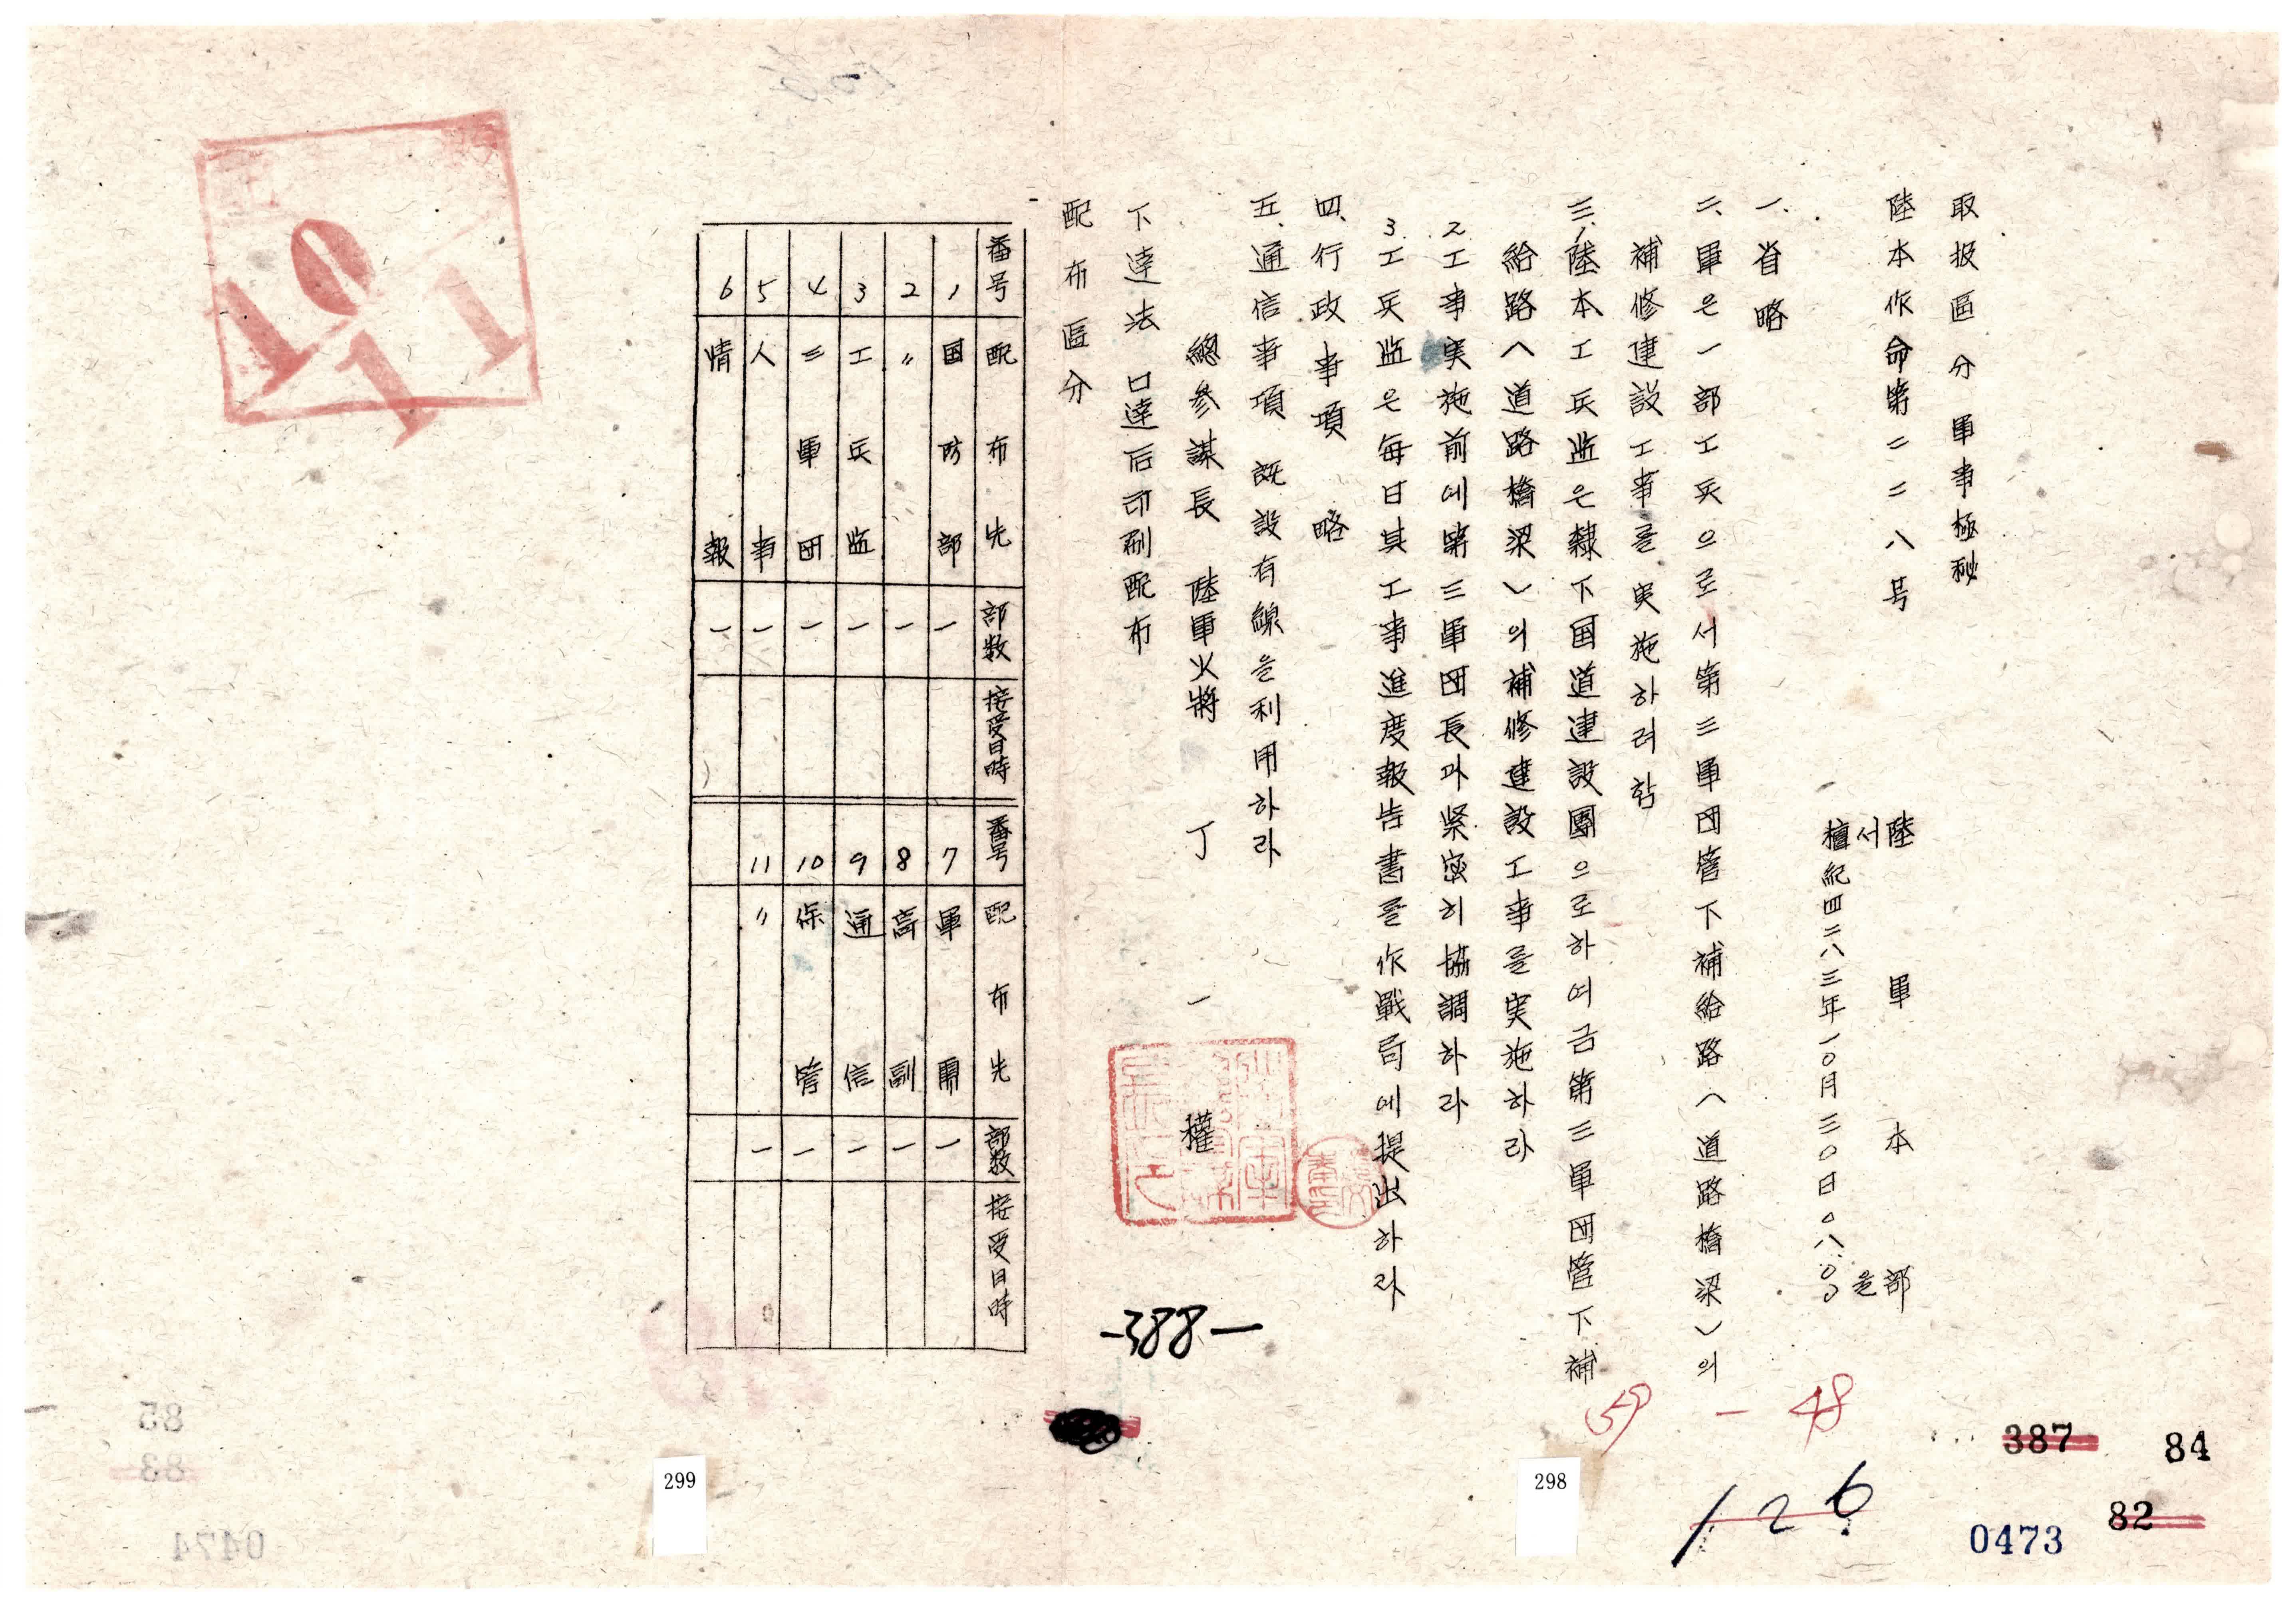 取扱區分 軍事極秘
陸本作命第二二八号
陸軍本部
서울
檀紀四二八三年一〇月三〇日〇八:〇〇
一. 省略
二. 軍은 一部工兵으로서 第三軍団管下補給路(道路橋梁)의
補修建設工事를 実施하려함
三. 1. 陸本工兵监은 隸下国道建設團으로하여금 第三軍団管下補
給路(道路橋梁)의 補修建設工事를 実施하라
2. 工事実施前에 第三軍団長과 緊密히 協調하라
3. 工兵监은 每日其工事進度報告書를 作戰局에 提出하라
四. 行政事項 略
五. 通信事項 既設有線을 利用하라
總參謀長 陸軍少將 丁一權
下達法 口達后印刷配布
配布區分
番号 配布先 部数 接受日時 番号 配布先 部数 接受日時
1 国防部 一 7 軍 一
2 〃 一 8 高副 一
3 工兵监 一 9 通信 一
4 三軍団 一 10 保管 一
5 人事 一 11 〃 一
6 情報 一
-388-
59-48
126
387
84
82
0473
298
299
10
11
85
83
0474